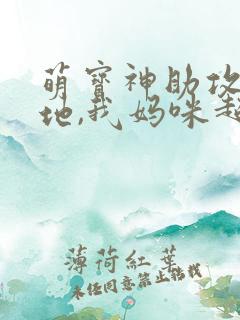 萌寶神助攻
地,我妈咪超
薄荷紅葉
未经同意禁止转载